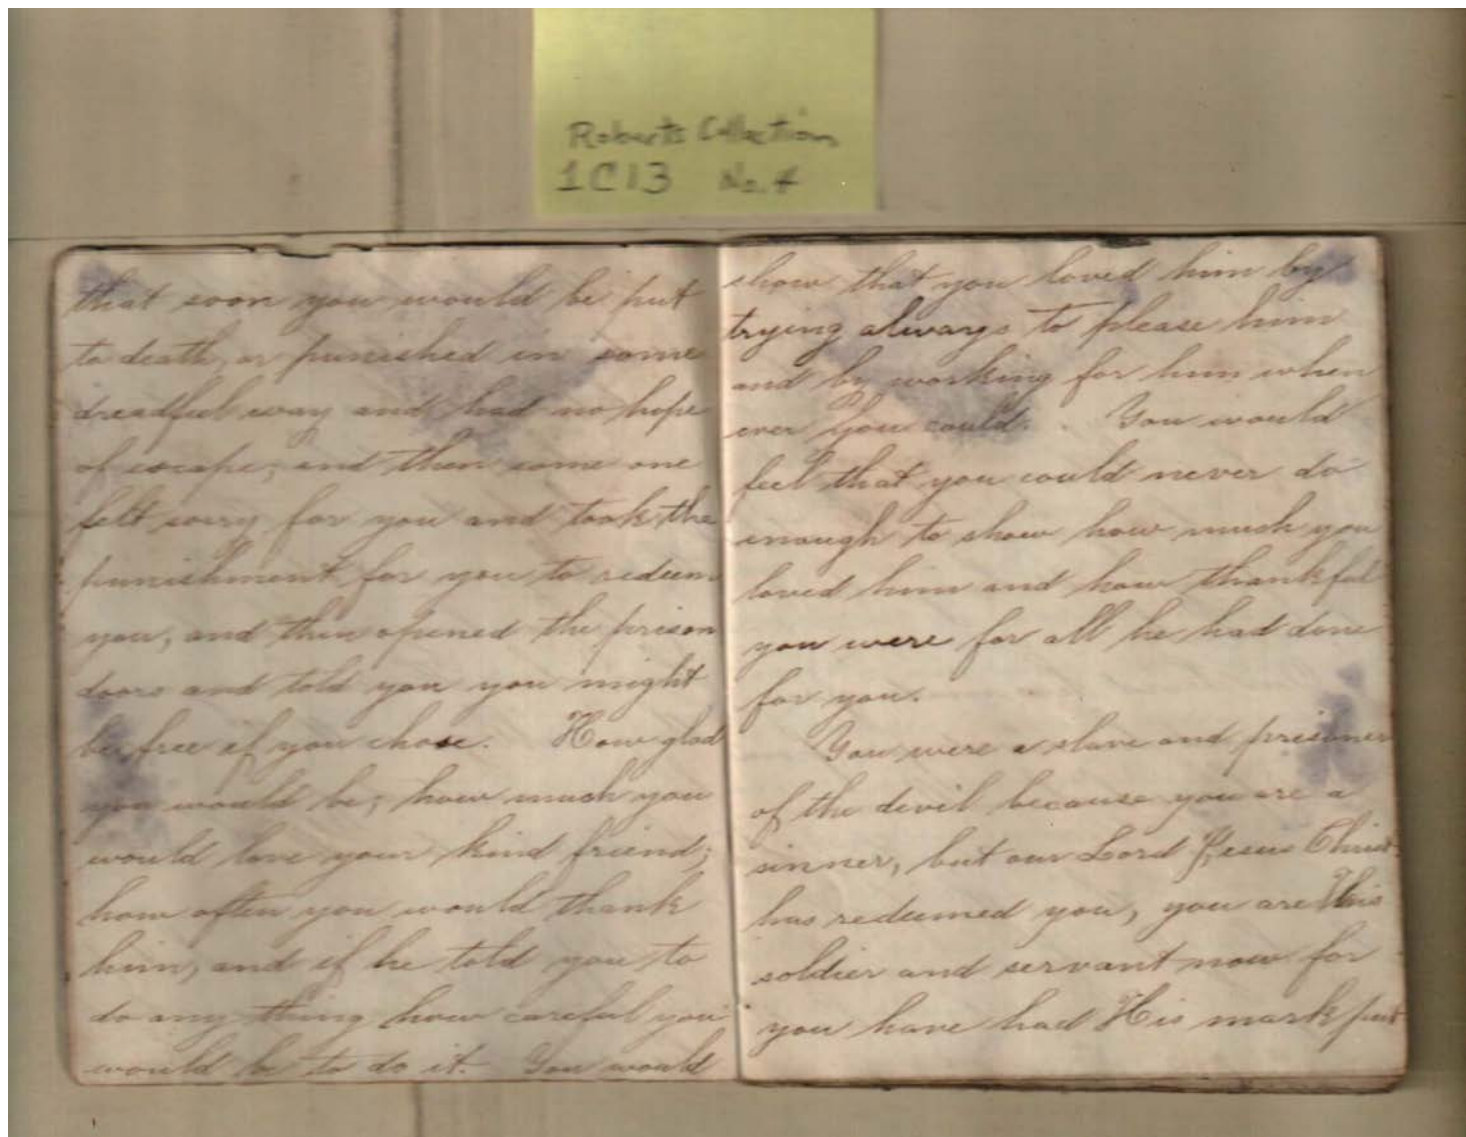 Roberts Collection
1C13 No. 4
that soon you would be put
to death, or punished in some
dreadful way and had no hope
of escape; and then some one
felt sorry for you and took the
punishment for you to redeem
you, and then opened the prison
doors and told you you might
be free if you chose. How glad
you would be; how much you
would love your kind friend;
how often you would thank
him, and if he told you to
do any thing how careful you
would be to do it. You would
show that you loved him by
trying always to please him
and by working for him when
ever you could. You would
feel that you could never do
enough to show how much you
loved him and how thankful
you were for all he had done
for you.
You were a slave and prisoner
of the devil because you are a
sinner, but our Lord Jesus Christ
has redeemed you, you are His
soldier and servant now for
you have had His mark put